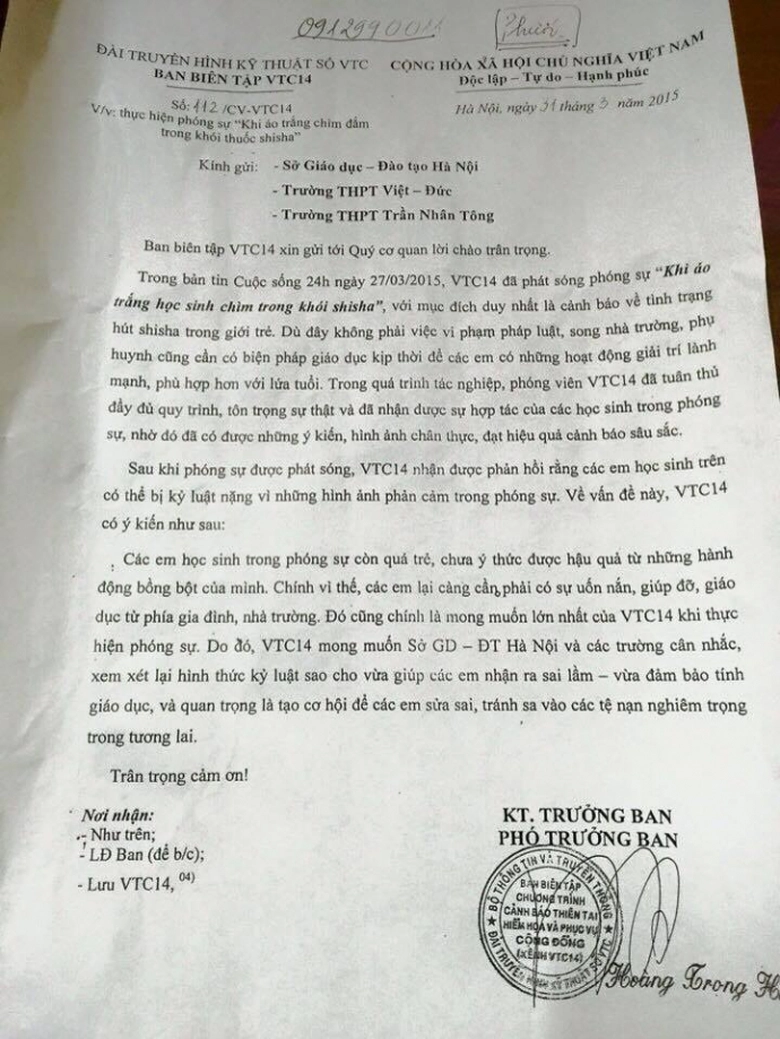 0912990011
ĐÀI TRUYỀN HÌNH KỸ THUẬT SỐ VTC
BAN BIÊN TẬP VTC14
CỘNG HÒA XÃ HỘI CHỦ NGHĨA VIỆT NAM
Độc lập – Tự do – Hạnh phúc
Số: 112 /CV-VTC14
V/v: thực hiện phóng sự “Khi áo trắng chìm đắm
trong khói thuốc shisha”
Hà Nội, ngày 31 tháng 3 năm 2015
Kính gửi: - Sở Giáo dục – Đào tạo Hà Nội
- Trường THPT Việt – Đức
- Trường THPT Trần Nhân Tông
Ban biên tập VTC14 xin gửi tới Quý cơ quan lời chào trân trọng.
Trong bản tin Cuộc sống 24h ngày 27/03/2015, VTC14 đã phát sóng phóng sự “Khi áo
trắng học sinh chìm trong khói shisha”, với mục đích duy nhất là cảnh báo về tình trạng
hút shisha trong giới trẻ. Dù đây không phải việc vi phạm pháp luật, song nhà trường, phụ
huynh cũng cần có biện pháp giáo dục kịp thời để các em có những hoạt động giải trí lành
mạnh, phù hợp hơn với lứa tuổi. Trong quá trình tác nghiệp, phóng viên VTC14 đã tuân thủ
đầy đủ quy trình, tôn trọng sự thật và đã nhận dược sự hợp tác của các học sinh trong phóng
sự, nhờ đó đã có được những ý kiến, hình ảnh chân thực, đạt hiệu quả cảnh báo sâu sắc.
Sau khi phóng sự được phát sóng, VTC14 nhận được phản hồi rằng các em học sinh trên
có thể bị kỷ luật nặng vì những hình ảnh phản cảm trong phóng sự. Về vấn đề này, VTC14
có ý kiến như sau:
Các em học sinh trong phóng sự còn quá trẻ, chưa ý thức được hậu quả từ những hành
động bồng bột của mình. Chính vì thế, các em lại càng cần phải có sự uốn nắn, giúp đỡ, giáo
dục từ phía gia đình, nhà trường. Đó cũng chính là mong muốn lớn nhất của VTC14 khi thực
hiện phóng sự. Do đó, VTC14 mong muốn Sở GD – ĐT Hà Nội và các trường cân nhắc,
xem xét lại hình thức kỷ luật sao cho vừa giúp các em nhận ra sai lầm – vừa đảm bảo tính
giáo dục, và quan trọng là tạo cơ hội để các em sửa sai, tránh sa vào các tệ nạn nghiêm trọng
trong tương lai.
Trân trọng cảm ơn!
Nơi nhận:
- Như trên;
- LĐ Ban (để b/c);
- Lưu VTC14, 04)
KT. TRƯỞNG BAN
PHÓ TRƯỞNG BAN
BỘ THÔNG TIN VÀ TRUYỀN THÔNG
BAN BIÊN TẬP
CHƯƠNG TRÌNH
CẢNH BÁO THIÊN TAI
HIỂM HỌA VÀ PHỤC VỤ
CỘNG ĐỒNG
(KÊNH VTC14)
ĐÀI TRUYỀN HÌNH KỸ THUẬT SỐ VTC
Hoàng Trọng